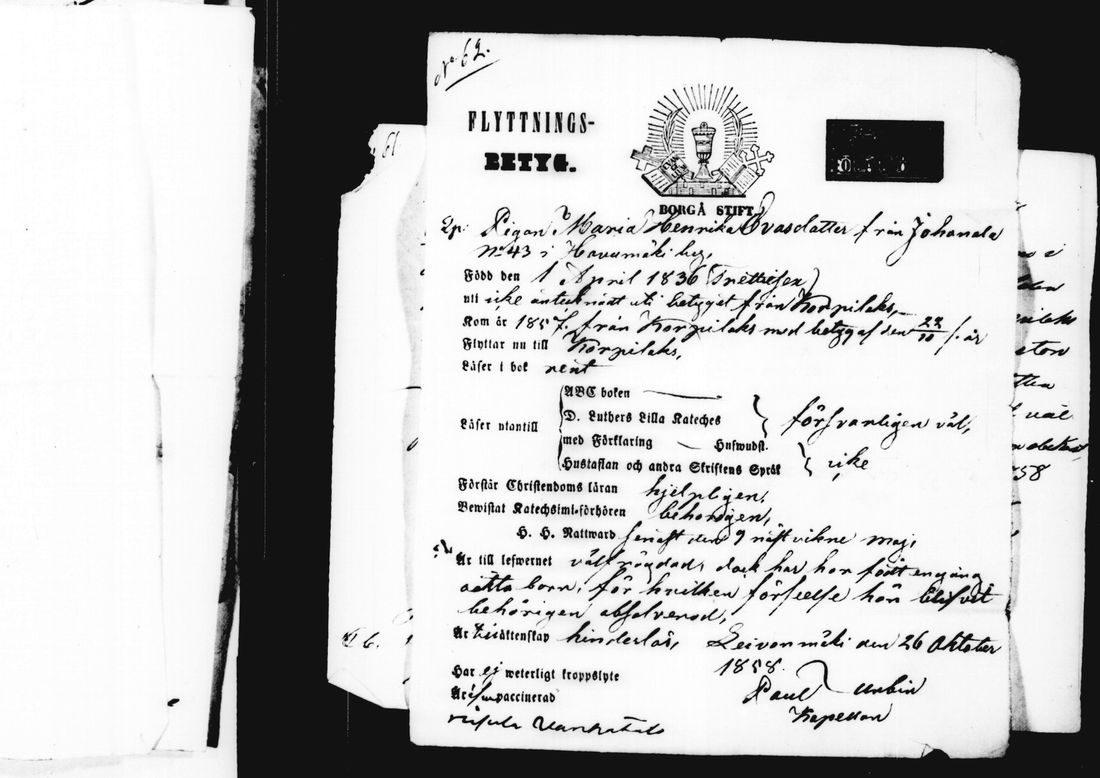 No 62.
61
FLYTTNINGS-
BETYG.
BORGÅ STIFT
Pigan Maria Henrika Evasdatter från Johanala
No 43 i Havumäki by,
Född den 1 April 1836 (Trettiosex)
uti icke antecknadt uti betyget från Korpilaks,
Kom år 1857, från Korpilaks med betyg af den 22/10 s. år
Flyttar nu till Korpilaks,
Läser i bok rent
Läser utantill
ABC boken
D. Luthers Lilla Kateches
försvarligen väl,
med Förklaring — Hufwudst.
Hustaflan och andra Skriftens Språk
icke
Förstår Christendoms läran hjelpligen,
Bewistat Katechsimi-förhören behörigen,
H. H. Nattward senast den 9 näst vikne maj,
Är till lefwernet välfrägdad, dock har hon födt en gång
barn, för hvilken förseelse hon blifvit
behörigen absolverad,
Är till äktenskap hinderlös, Leivonmäki den 26 Oktober
1858.
Har ej weterligt kroppslyte
Paul Unbin
Är waccinerad
Kapellan
58
6.